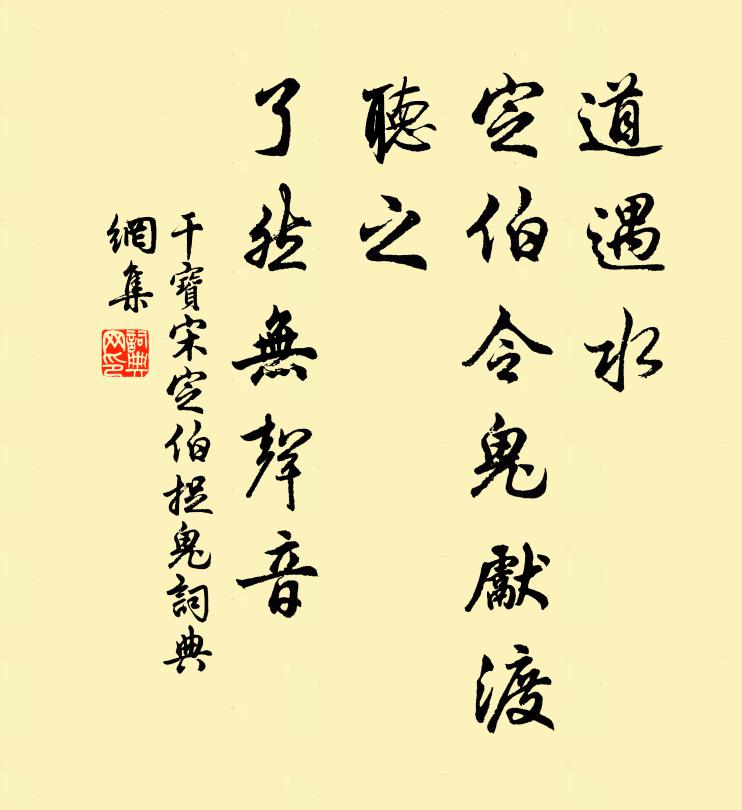 道遇水
定伯令鬼獻渡
聽之
了然無聲音
干寶宋定伯捉鬼詞典
網集
詞典
网印